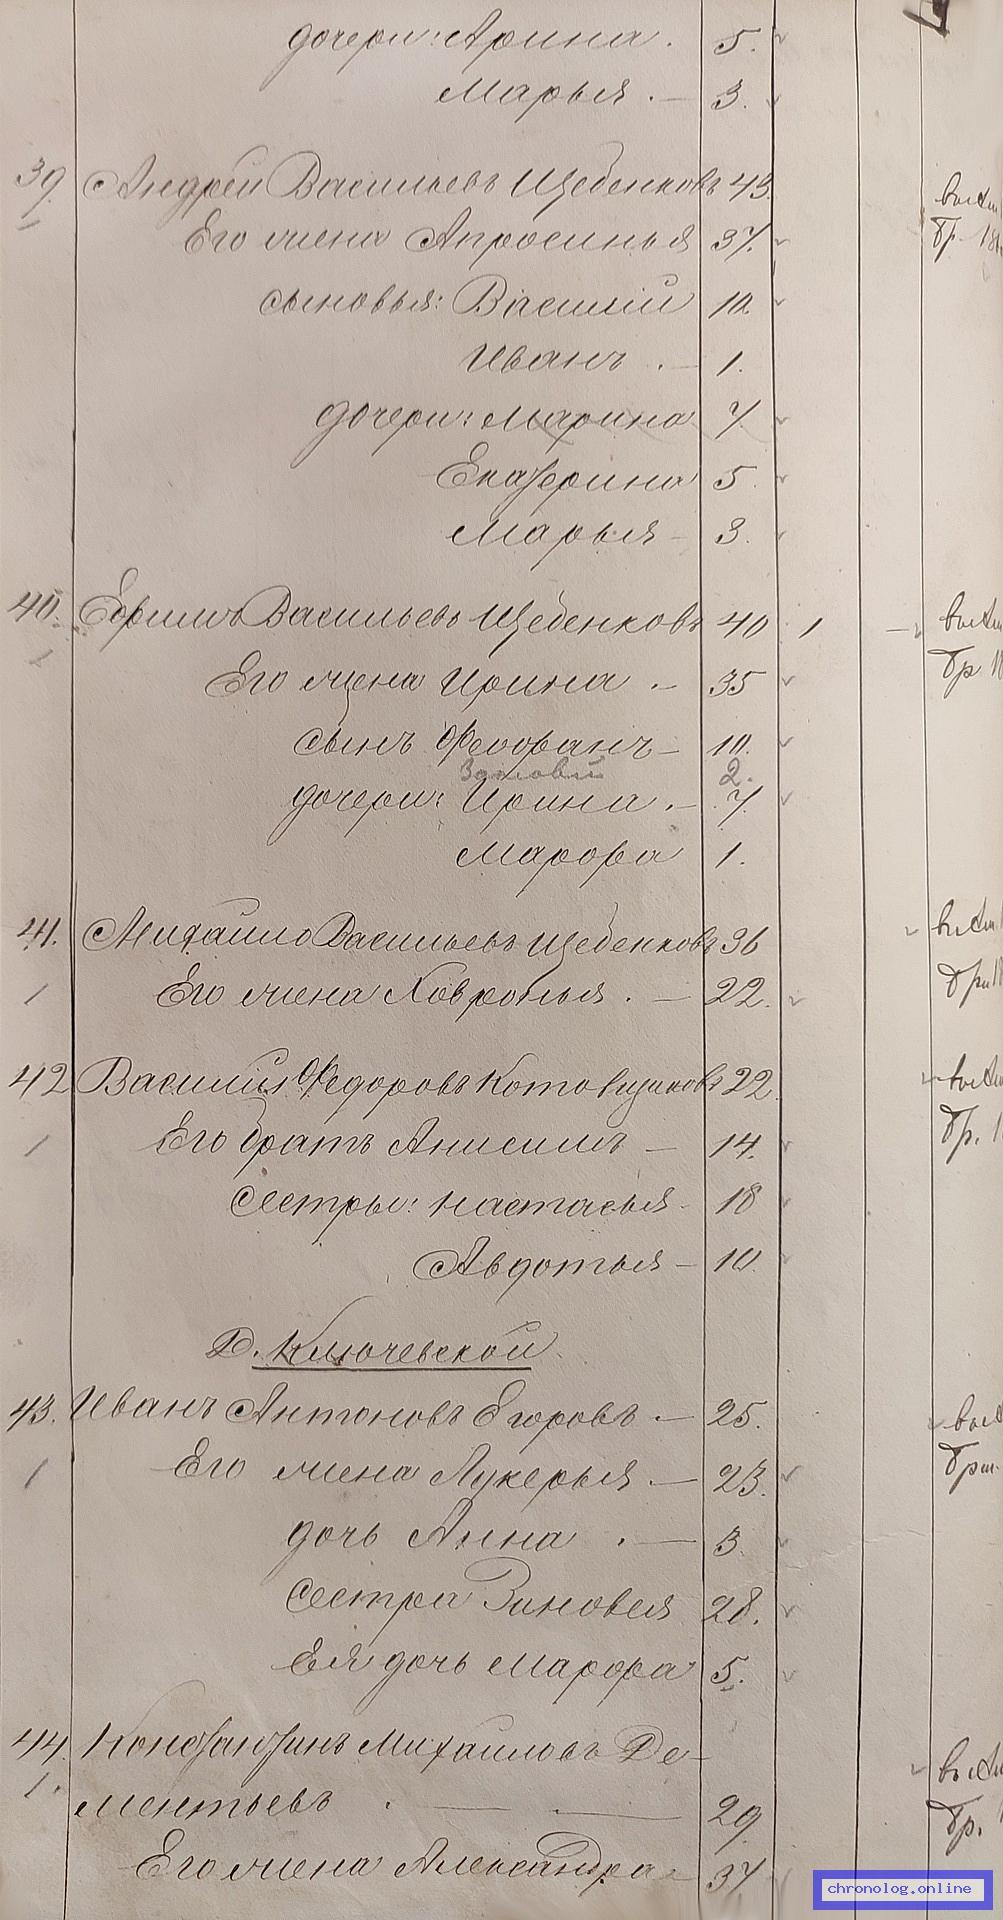 дочери: Арина . 5.
Марья . — 3.
39. Андрей Васильевъ Щебенковъ 43.
Его жена Апросинья 37.
сыновья: Василій 10
Иванъ . — 1.
дочери: Марина 7.
Екатерина 5.
Марья — 3.
40. Ефимъ Васильевъ Щебенковъ 40 1 —
1 Его жена Ирина . — 35
сынъ Феофанъ — 10.
Зотовій 2.
дочери: Ирина . — 7.
Марфа 1.
41. Михайло Васильевъ Щебенковъ 36
1 Его жена Ховронья . — 22.
42 Василій Федоровъ Котовщиковъ 22
1 Его братъ Анисимъ — 14.
Сестры: Настасья . 18
Авдотья — 10.
Д. Ключевской
43. Иванъ Антоновъ Егоровъ . — 25.
1 Его жена Лукерья — 23.
дочь Анна . — 3.
Сестра Зиновея 28.
Ея дочь Марфа 5.
44. Константинъ Михайловъ Де-
1. ментьевъ . — — 29.
Его жена Александра — 37
chronolog.online